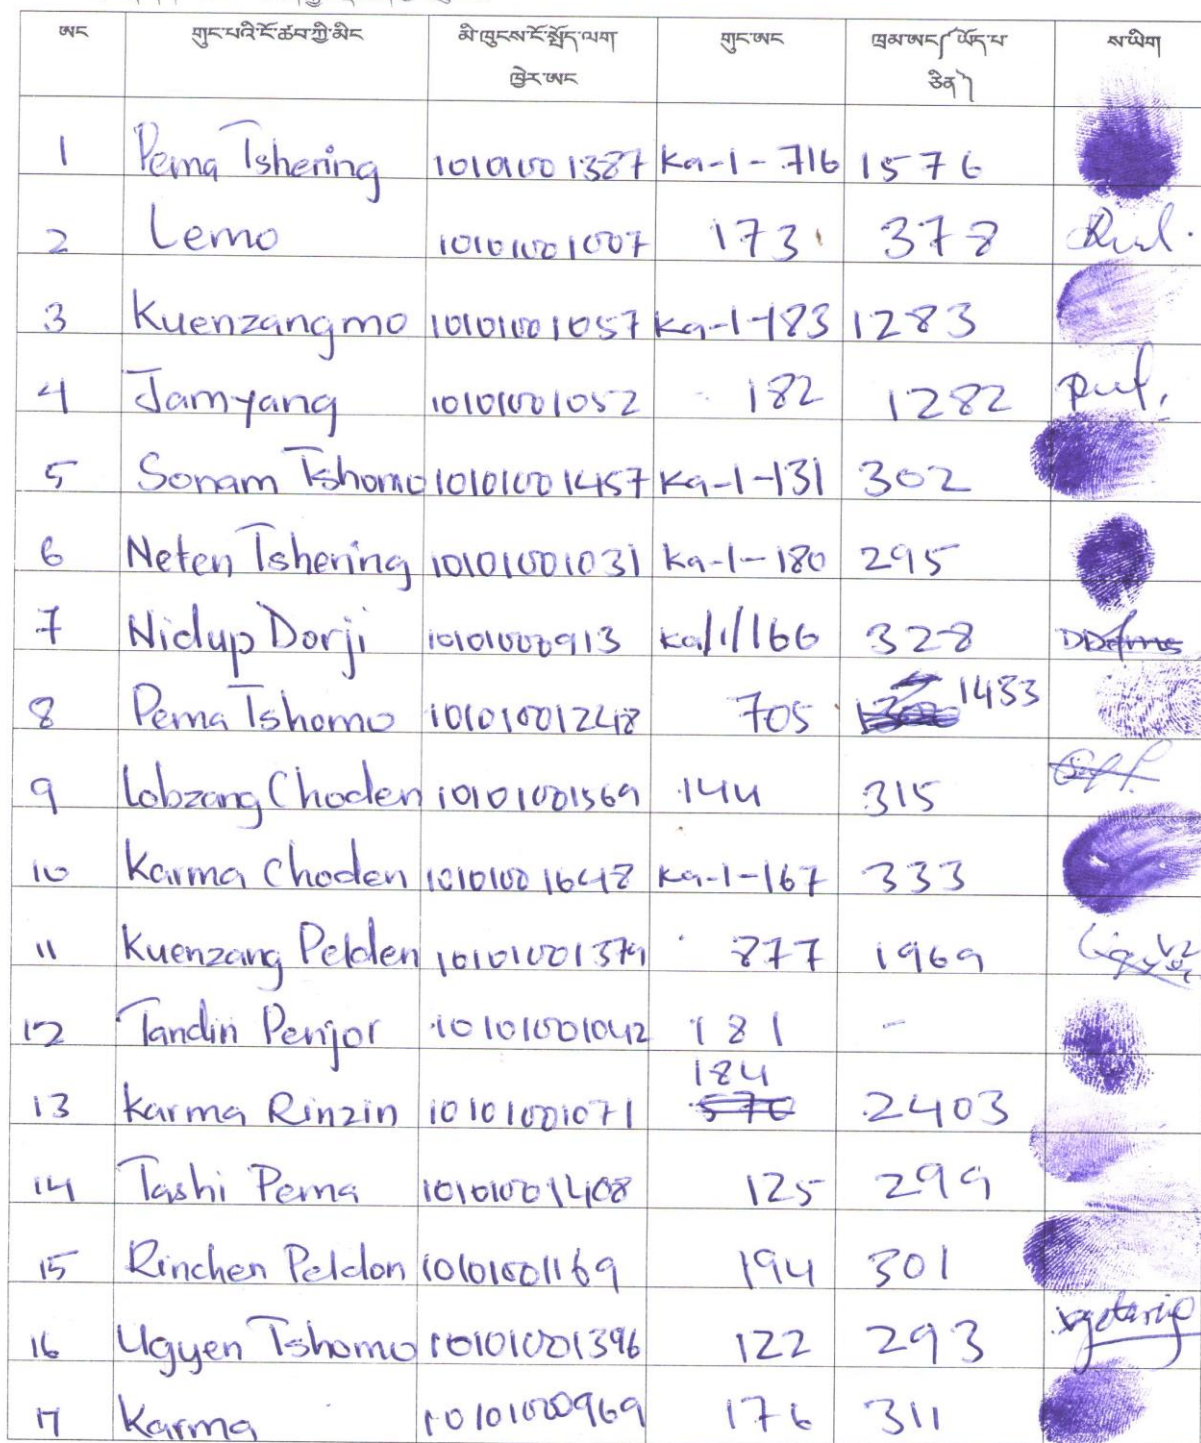 ཨང གུང་པའི་ངོ་ཚབ་ཀྱི་མིང མི་ཁུངས་ངོ་སྤྲོད་ལག་ཁྱེར་ཨང གུང་ཨང ཁྲམ་ཨང༼ཡོད་པ་ཅིན༽ ས་ཡིག
1 Pema Tshering 10101001387 Ka-1-716 1576
2 Lemo 10101001007 173 378
3 Kuenzangmo 10101001057 Ka-1-183 1283
4 Jamyang 10101001052 182 1282
5 Sonam Tshomo 10101001457 Ka-1-131 302
6 Neten Tshering 10101001031 Ka-1-180 295
7 Nidup Dorji 10101000913 Ka/1/166 328
8 Pema Tshomo 10101001248 705 1433
9 Lobzang Choden 10101001569 144 315
10 Karma Choden 10101001648 Ka-1-167 333
11 Kuenzang Pelden 10101001379 877 1969
12 Tandin Penjor 10101001042 181 -
184
13 Karma Rinzin 10101001071 570 2403
14 Tashi Pema 10101001408 125 299
15 Rinchen Peldon 10101001169 194 301
16 Ugyen Tshomo 10101001396 122 293
17 Karma 10101000969 176 311